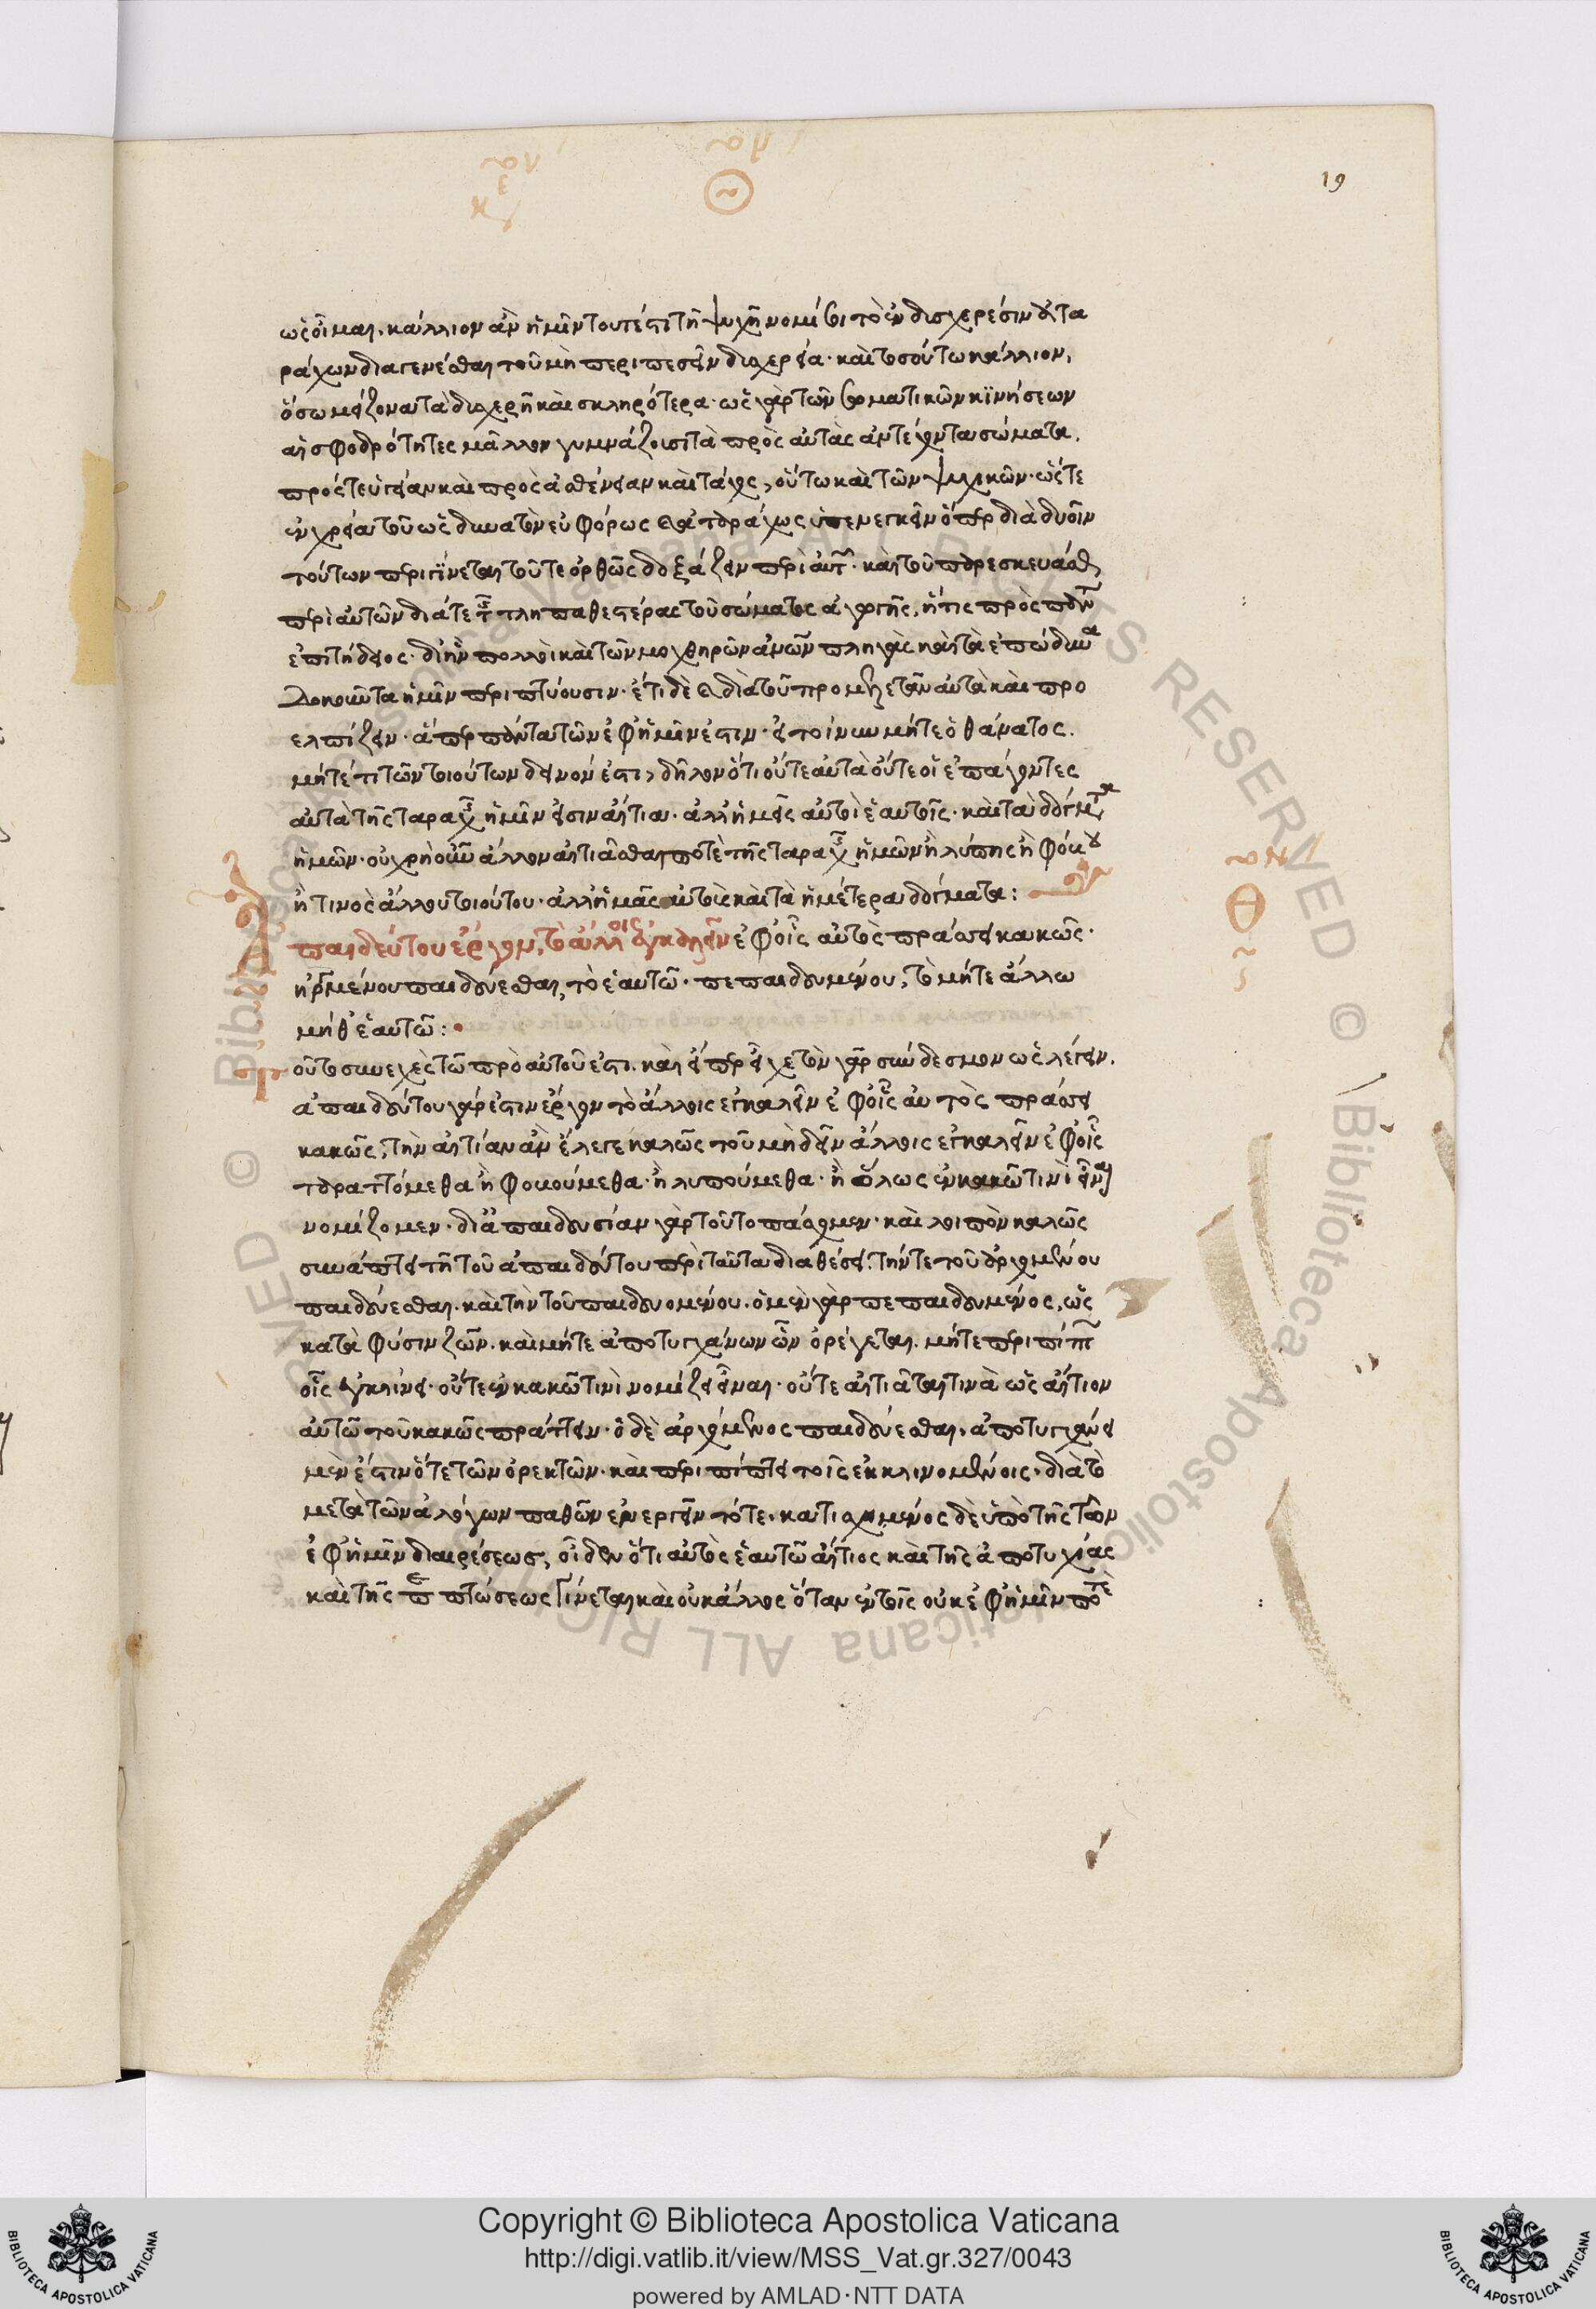 19
ὡς οἶμαι. κάλλιον ἂν ἡμῖν τουτέστι τῇ ψυχῇ νομίσοι τὸ ἐν δυσχερέσιν ἀτα
ράχων διαγενέσθαι τοῦ μὴ περιπεσεῖν δυσχερεία· καὶ τοσούτω κάλλιον,
ὅσω μείζονα τὰ δυσχερῆ καὶ σκληρότερα· ὡς γὰρ τῶν σωματικῶν κϊνήσεων
αἱ σφοδρότητες μᾶλλον γυμνάζουσι τὰ πρὸς αὐτὰς ἀντέχοντα σώματα,
πρός τε ὑγείαν καὶ πρὸς ἀσθένειαν καὶ τάχος, οὕτω καὶ τῶν ψυχικῶν· ὥστε
ἐν χρεία τοῦ ὡς δυνατὸν εὐφόρως καὶ ἀταράχως ὑπενεγκεῖν ὅπερ διὰ δυοῖν
τούτων περιγϊνεται τοῦ τε ὀρθῶς δοξάζειν περὶ αὐτ· καὶ τοῦ παρεσκευάσθ
περὶ αὐτῶν διά τε τ πληπαθεστέρας τοῦ σώματος ἀγωγῆς, ἥτις πρὸς πάντ
ἐπιτήδειος· δι ἣν πολλοὶ καὶ τῶν μοχθηρῶν ἀνῶν πληγὰς καὶ τὰ ἐπώδυνα
δοκοῦντα ἡμῖν περιπτύουσιν· ἔτι δὲ καὶ διὰ τοῦ προμελετᾶν αὐτὰ καὶ προ
ελπίζειν· ἅπερ πάντα τῶν ἐφ ἡμῖν ἐστιν· εἰ τοίνυν μήτε ὁ θάνατος.
μήτέ τι τῶν τοιούτων δεινόν ἐστι, δῆλον ὅτι οὔτε αὐτὰ οὔτε οἱ ἐπάγοντες
αὐτὰ τῆς ταραχ ἡμῖν εἰσιν αἴτιοι. ἀλλ ἡμεῖς αὐτοὶ ἑαυτοῖς· καὶ τὰ δόγματα
ἡμῶν· οὐ χρὴ οὖν ἄλλον αἰτιᾶσθαι ποτὲ τῆς ταραχ ἡμῶν ἢ λύπης ἢ φόβου
ἤ τινος ἄλλου τοιούτου· ἀλλ ἡμᾶς αὐτοὺς καὶ τὰ ἡμέτερα δόγματα:
Ἀπαιδεύτου ἔργον, τὸ ἄλλοις ἐγκαλεῖν ἐφ οἷς αὐτὸς πράσσει κακῶς·
ἠργμένου παιδεύεσθαι, τὸ ἑαυτῶ· πεπαιδευμένου, τὸ μήτε ἄλλω
μήθ ἑαυτῶ:
τοῦτο συνεχὲς τῶ πρὸ αὐτοῦ ἐστι. καὶ εἴπερ εἶχε τὸν γὰρ σύνδεσμον ὡς λέγειν.
ἀπαιδεύτου γάρ ἐστιν ἔργον τὸ ἄλλοις ἐγκαλεῖν ἐφ οἷς αὐτὸς πράσσει
κακῶς, τὴν αἰτίαν ἂν ἔλεγε καλῶς τοῦ μὴ δεῖν ἄλλοις ἐγκαλεῖν ἐφ οἷς
ταραττόμεθα ἢ φοβούμεθα· ἢ λυπούμεθα· ἢ ὅλως ἐν κακῶ τινὶ εἶναι
νομίζομεν· δι ἀπαιδευσίαν γὰρ τοῦτο πάσχομεν· καὶ λοιπὸν καλῶς
συνάπτει τῆ τοῦ ἀπαιδεύτου περὶ ταῦτα διαθέσει. τήν τε τοῦ ἀρχομένου
παιδεύεσθαι. καὶ τὴν τοῦ παιδευομένου. ὁ μὲν γὰρ πεπαιδευμένος, ὡς
κατὰ φύσιν ζῶν. καὶ μήτε ἀποτυγχάνων ὧν ὀρέγεται. μήτε περιπίπτ
οἷς ἐγκλίνει· οὔτε ἐν κακῶ τινὶ νομίζει εἶναι· οὔτε αἰτιᾶται τινὰ ὡς αἴτιον
αὐτῶ τοῦ κακῶς πράττειν· ὁ δὲ ἀρχόμενος παιδεύεσθαι, ἀποτυγχάνει
μὲν ἔστιν ὅτε τῶν ὀρεκτῶν· καὶ περιπίπτει τοῖς ἐκκλινομένοις· διὰ τὸ
μετὰ τῶν ἀλόγων παθῶν ἐνεργεῖν τότε. κατισχημένος δὲ ὑπὸ τῆς τῶν
ἐφ ἡμῖν διαιρέσεως, οἶδεν ὅτι αὐτὸς ἑαυτῶ αἴτιος καὶ τῆς ἀποτυχίας
καὶ τῆς περιπτώσεως γίνεται καὶ οὐκ ἄλλος ὅταν ἐν τοῖς οὐκ ἐφ ἡμῖν ποτὲ
Copyright © Biblioteca Apostolica Vaticana
http://digi.vatlib.it/view/MSS_Vat.gr.327/0043
powered by AMLAD·NTT DATA